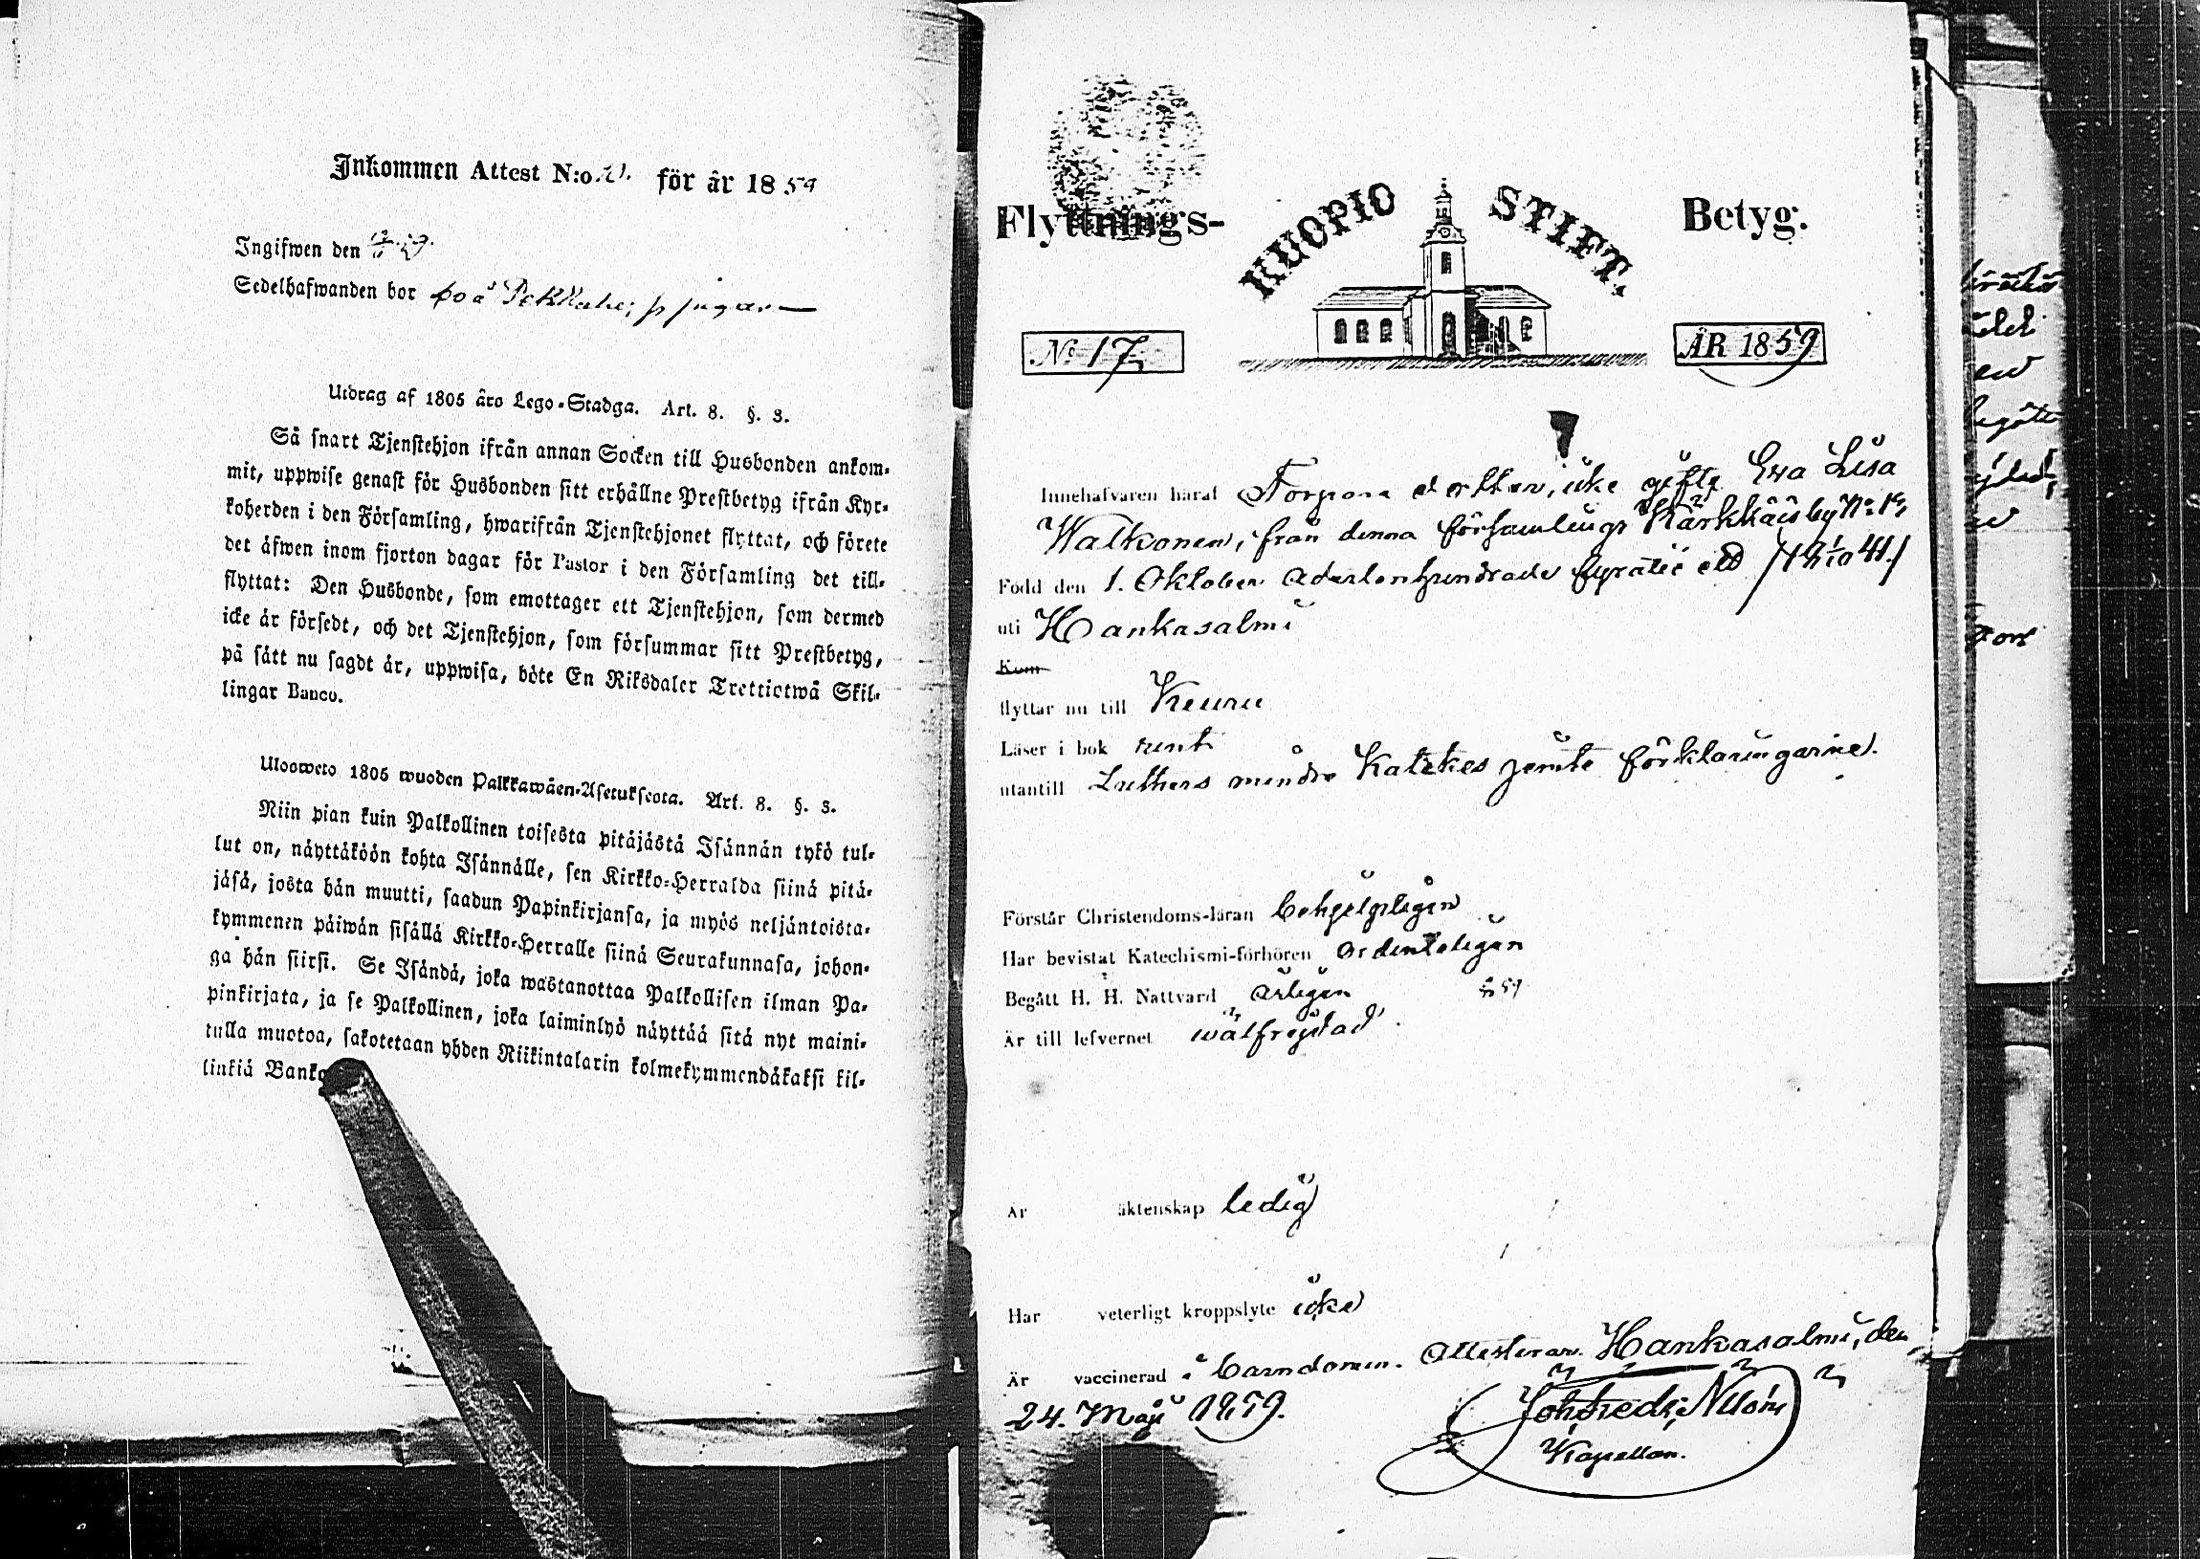 Inkommen Attest N:o för år 1859
Ingifwen den
Sedelhafwanden bor på
Utdrag af 1805 åro Lego-Stadga. Art. 8. §. 3.
Så snart Tjenstehjon ifrån annan Socken till Husbonden ankom-
mit, uppwise genast för Husbonden sitt erhållne Prestbetyg ifrån Kyr-
koherden i den Församling, hwarifrån Tjenstehjonet flyttat, och förete
det åfwen inom fjorton dagar för Pastor i den Församling det till-
flyttat: Den Husbonde, som emottager ett Tjenstehjon, som dermed
icke år försedt, och det Tjenstehjon, som försummar sitt Prestbetyg,
på sått nu sagdt år, uppwisa, böte En Riksdaler Trettiotwå Skil-
lingar Banco.
Uloosweto 1805 wuoden Palkkawäen-Asetuksesta. Art. 8. §. 3.
Niin pian kuin Palkollinen toisesta pitåjåstå Isånnån tykö tul-
lut on, nåyttåköön kohta Isånnålle, sen Kirkko-Herralda siinå pitå-
jåså, josta hån muutti, saadun Papinkirjansa, ja myös neljåntoista-
kymmenen påiwån sisållå Kirkko-Herralle siinå Seurakunnasa, johon-
ga hån siirsi. Se Isåndå, joka wastanottaa Palkollisen ilman Pa-
pinkirjata, ja se Palkollinen, joka laiminlyö nåyttåå sitå nyt maini-
tulla muotoa, sakotetaan yhden Riikintalarin kolmekymmendåkaksi kil-
linkiå Banko
Flyttnings- KUOPIO STIFT. Betyg.
No 17 ÅR 1859
Innehafvaren häraf Torpare dotter, icke gifta Eva Lisa
Walkonen, från denna församlings Kärkkäis by No 19,
Född den 1. Oktober Adertonhundrade fyratio ett
uti Hankasalmi
Kom
flyttar nu till Keuru
Läser i bok rent
utantill Luthers mindre Katekes jemte förklaringarne.
Förstår Christendoms-läran behjelpligen
Har bevistat Katechismi-förhören ordenteligen
Begått H. H. Nattvard årligen 59
Är till lefvernet wälfrejdad
Är äktenskap ledig
Har veterligt kroppslyte icke
Är vaccinerad i barndomen. Attesterar. Hankasalmi, den
24. Maji 1859.
Kapellan.